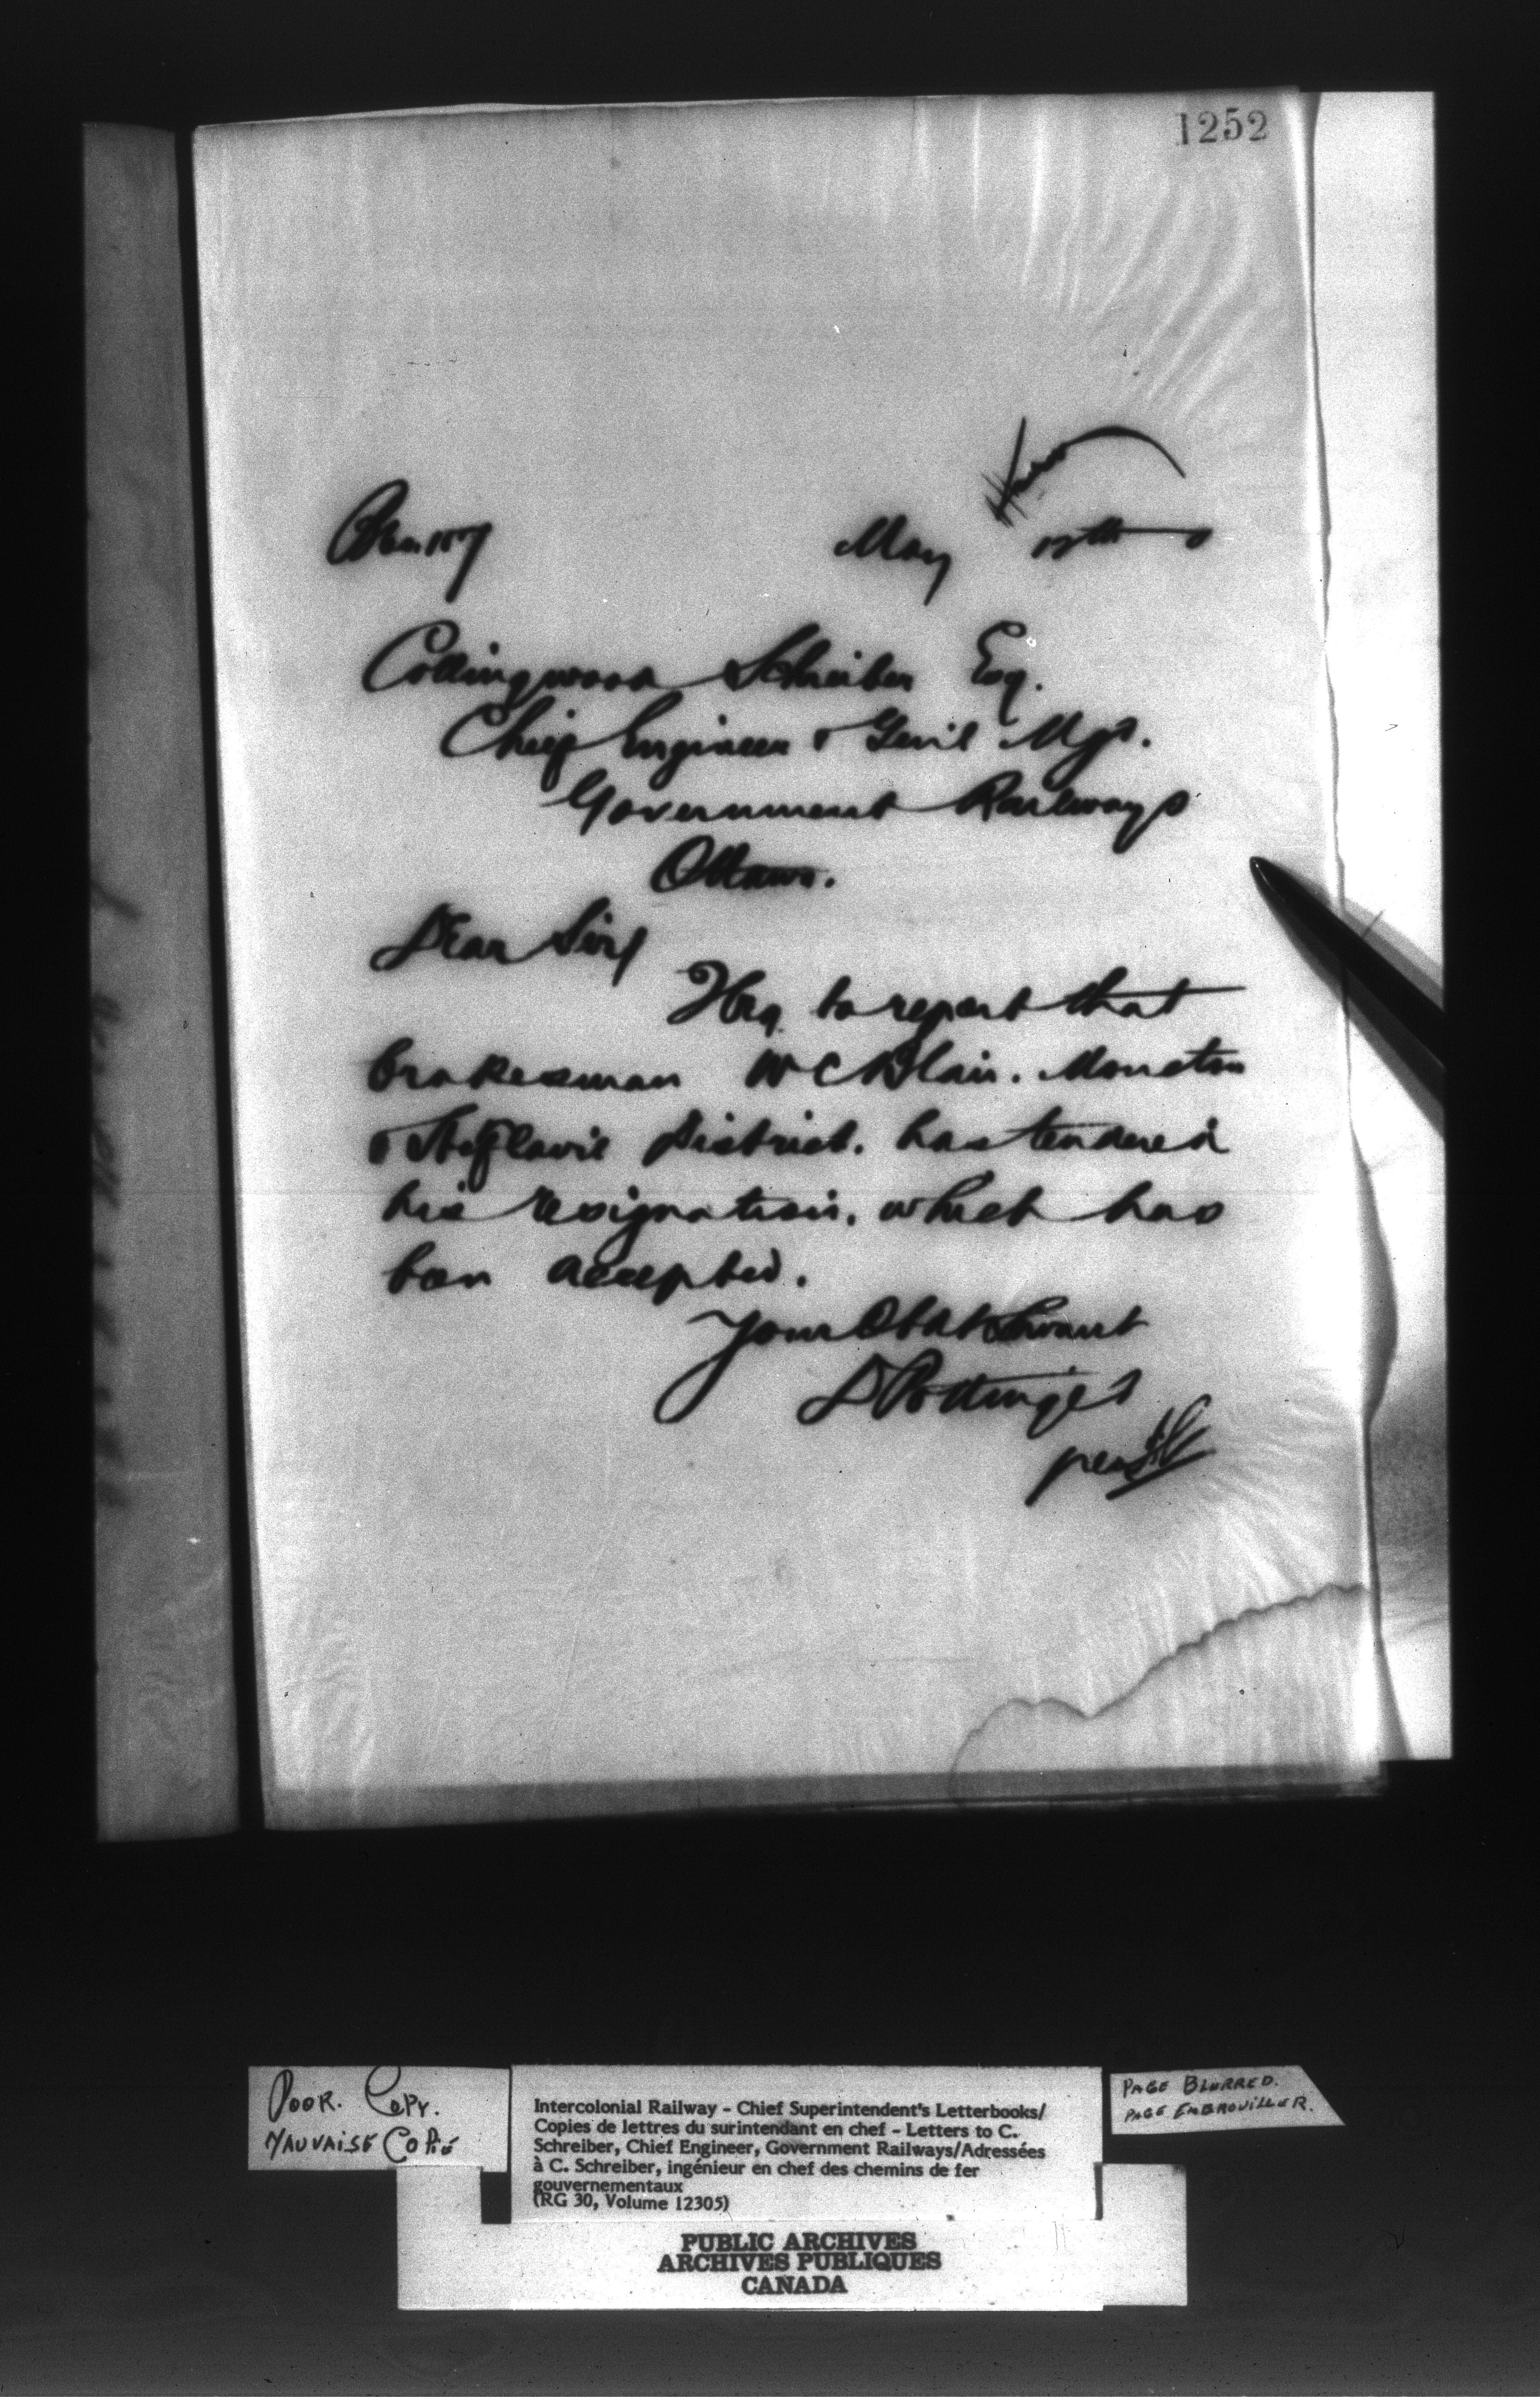 1252
May 12th
Collingwood Schreiber Esq.
Chief Engineer & Genl Mgr.
Government Railways
Ottawa.
Dear Sir/
I beg to report that
brakesman W C Blair. Moncton
& Ste Flavie District. has tendered
his resignation, which has
been accepted.
Your Obdt Servant
D Pottinger
per
POOR. COPY.
MAUVAISE COPIE
Intercolonial Railway – Chief Superintendent's Letterbooks/
Copies de lettres du surintendant en chef – Letters to C.
Schreiber, Chief Engineer, Government Railways/Adressées
à C. Schreiber, ingénieur en chef des chemins de fer
gouvernementaux
(RG 30, Volume 12305)
PAGE BLURRED.
PAGE EMBROUILLER.
PUBLIC ARCHIVES
ARCHIVES PUBLIQUES
CANADA